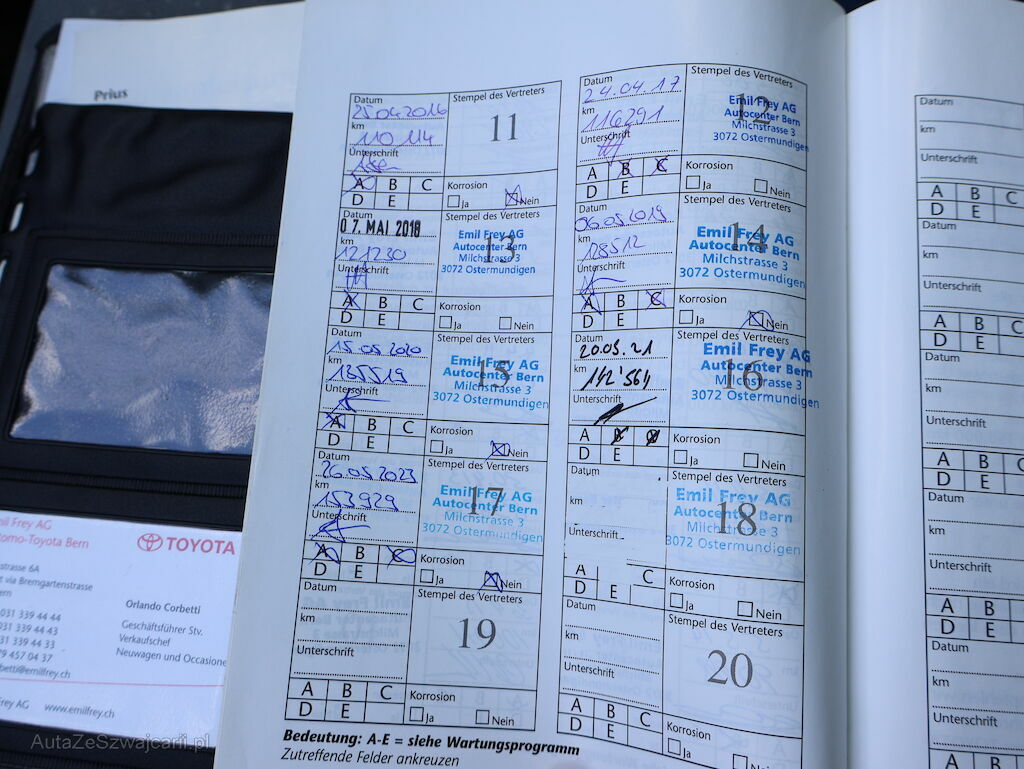 Prius
Datum
25.04.2016
km
110.114
Unterschrift
Stempel des Vertreters
11
A B C
D E
Korrosion
Ja Nein
Datum
24.04.17
km
116291
Unterschrift
Stempel des Vertreters
12
Emil Frey AG
Autocenter Bern
Milchstrasse 3
3072 Ostermundigen
A B C
D E
Korrosion
Ja Nein
Datum
07. MAI 2018
km
121230
Unterschrift
Stempel des Vertreters
13
Emil Frey AG
Autocenter Bern
Milchstrasse 3
3072 Ostermundigen
A B C
D E
Korrosion
Ja Nein
Datum
06.05.2019
km
128512
Unterschrift
Stempel des Vertreters
14
Emil Frey AG
Autocenter Bern
Milchstrasse 3
3072 Ostermundigen
A B C
D E
Korrosion
Ja Nein
Datum
15.05.2020
km
135519
Unterschrift
Stempel des Vertreters
15
Emil Frey AG
Autocenter Bern
Milchstrasse 3
3072 Ostermundigen
A B C
D E
Korrosion
Ja Nein
Datum
20.05.21
km
142'564
Unterschrift
Stempel des Vertreters
16
Emil Frey AG
Autocenter Bern
Milchstrasse 3
3072 Ostermundigen
A
D E
Korrosion
Ja Nein
Datum
26.05.2023
km
153929
Unterschrift
Stempel des Vertreters
17
Emil Frey AG
Autocenter Bern
Milchstrasse 3
3072 Ostermundigen
A B
D E
Korrosion
Ja Nein
Datum
km
Unterschrift
Stempel des Vertreters
18
Emil Frey AG
Autocenter Bern
Milchstrasse 3
3072 Ostermundigen
A C
D E
Korrosion
Ja Nein
Datum
km
Unterschrift
Stempel des Vertreters
19
A B C
D E
Korrosion
Ja Nein
Datum
km
Unterschrift
Stempel des Vertreters
20
A B C
D E
Korrosion
Ja Nein
Bedeutung: A-E = siehe Wartungsprogramm
Zutreffende Felder ankreuzen
Datum
km
Unterschrift
A B C
D E
Datum
km
Unterschrift
A B C
D E
Datum
km
Unterschrift
A B C
D E
Datum
km
Unterschrift
A B
D E
Datum
km
Unterschrift
A B
Frey AG
Toyota Bern
TOYOTA
strasse 6A
via Bremgartenstrasse
031 339 44 44
031 339 44 43
31 339 44 33
79 457 04 37
betti@emilfrey.ch
Orlando Corbetti
Geschäftsführer Stv.
Verkaufschef
Neuwagen und Occasione
Frey AG www.emilfrey.ch
AutaZeSzwajcarii.pl